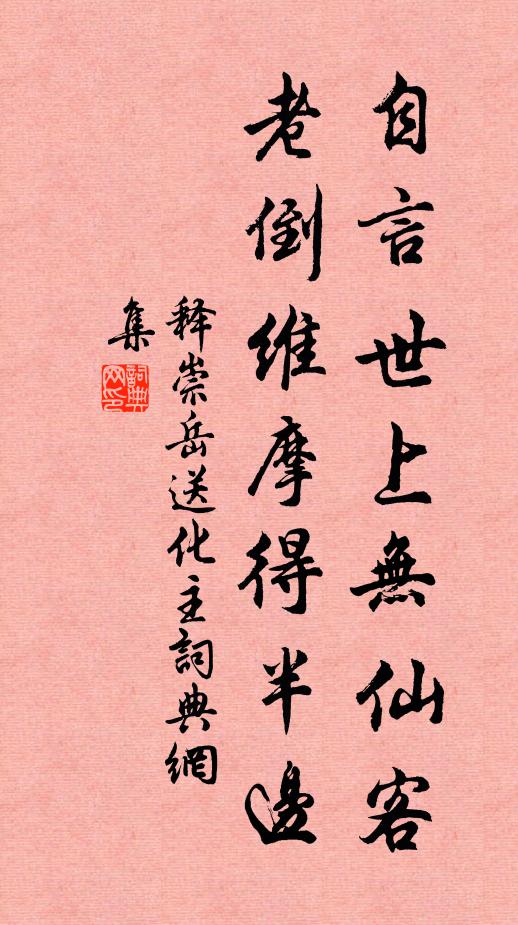 自言世上無仙客
老倒維摩得半邊
释崇岳送化主詞典網
集
詞典網印